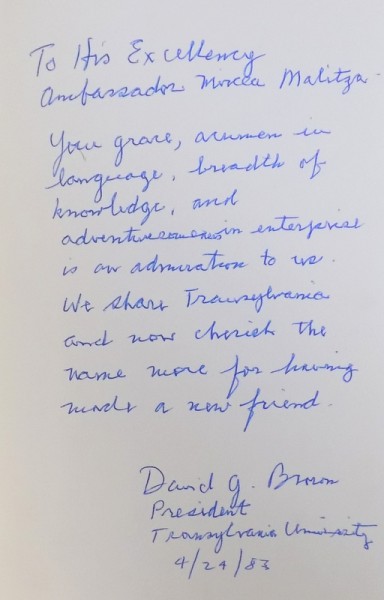 To His Excellency
Ambassador Mircea Malitza
Your grace, acumen in
language, breadth of
knowledge, and
adventuresomeness in enterprise
is an admiration to us.
We share Transylvania
and now cherish the
name more for having
made a new friend.
David G. Brown
President
Transylvania University
4/24/83